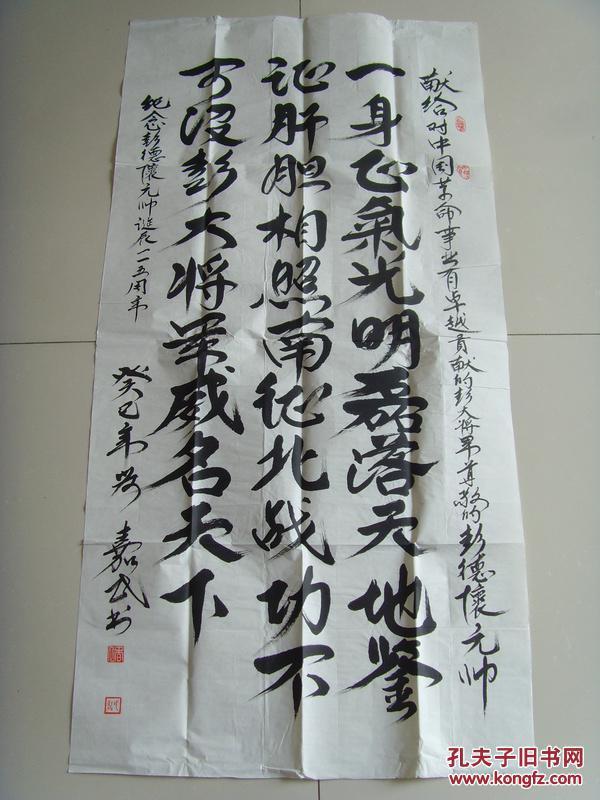 献给对中国革命事业有卓越贡献的彭大将军尊敬的彭德懷元帅
一身正氣光明磊落天地鉴
证肝胆相照南征北战功不
可没彭大将军威名天下
纪念彭德懷元帅诞辰一一五周年
癸巳年 嘉武书
孔夫子旧书网
www.kongfz.com